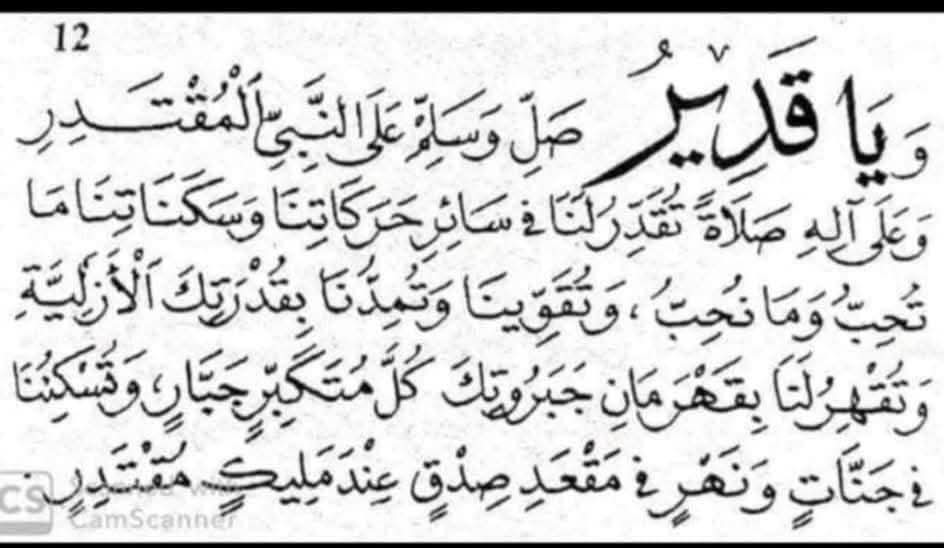 12
وَيَا قَدِيْرُ صَلِّ وَسَلِّمْ عَلَى النَّبِيِّ الْمُقْتَدِرِ
وَعَلَى آلِهِ صَلَاةً تُقَدِّرُ لَنَا فِي سَائِرِ حَرَكَاتِنَا وَسَكَنَاتِنَا مَا
تُحِبُّ وَمَا نُحِبُّ، وَتُقَوِّينَا وَتُمِدُّنَا بِقُدْرَتِكَ الْأَزَلِيَّةِ
وَتُقْهِرُ لَنَا بِقَهْرَمَانِ جَبَرُوتِكَ كُلَّ مُتَكَبِّرٍ جَبَّارٍ، وَتُسْكِنُنَا
فِي جَنَّاتٍ وَنَهَرٍ فِي مَقْعَدِ صِدْقٍ عِنْدَ مَلِيكٍ مُقْتَدِرٍ.
CS Scanned with
CamScanner